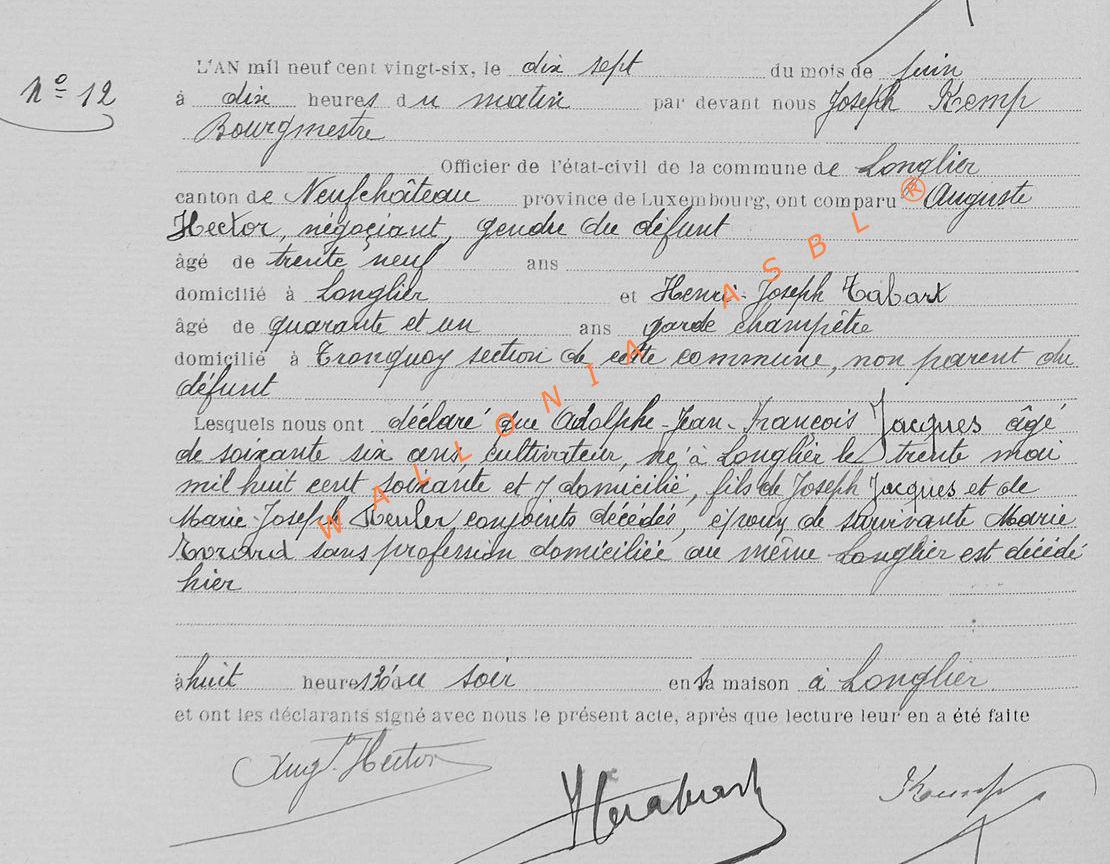 N° 12
L'AN mil neuf cent vingt-six, le dix sept du mois de juin
à dix heures du matin par devant nous Joseph Kemp
Bourgmestre
Officier de l'état-civil de la commune de Longlier
canton de Neufchâteau province de Luxembourg, ont comparu Auguste
Hector, négociant, gendre du défunt
âgé de trente neuf ans
domicilié à Longlier et Henri-Joseph Tabart
âgé de quarante et un ans garde champêtre
domicilié à Tronquoy section de cette commune, non parent du
défunt
Lesquels nous ont déclaré que Adolphe-Jean-François Jacques âgé
de soixante six ans, cultivateur, né à Longlier le trente mai
mil huit cent soixante et y domicilié, fils de Joseph Jacques et de
Marie-Joseph conjoints décédés, époux de survivante Marie
Evrard sans profession domiciliée au même Longlier est décédé
hier
à huit heures 30 du soir en sa maison à Longlier
et ont les déclarants signé avec nous le présent acte, après que lecture leur en a été faite
Aug. Hector
Kemp
WALLONIA ASBL ®